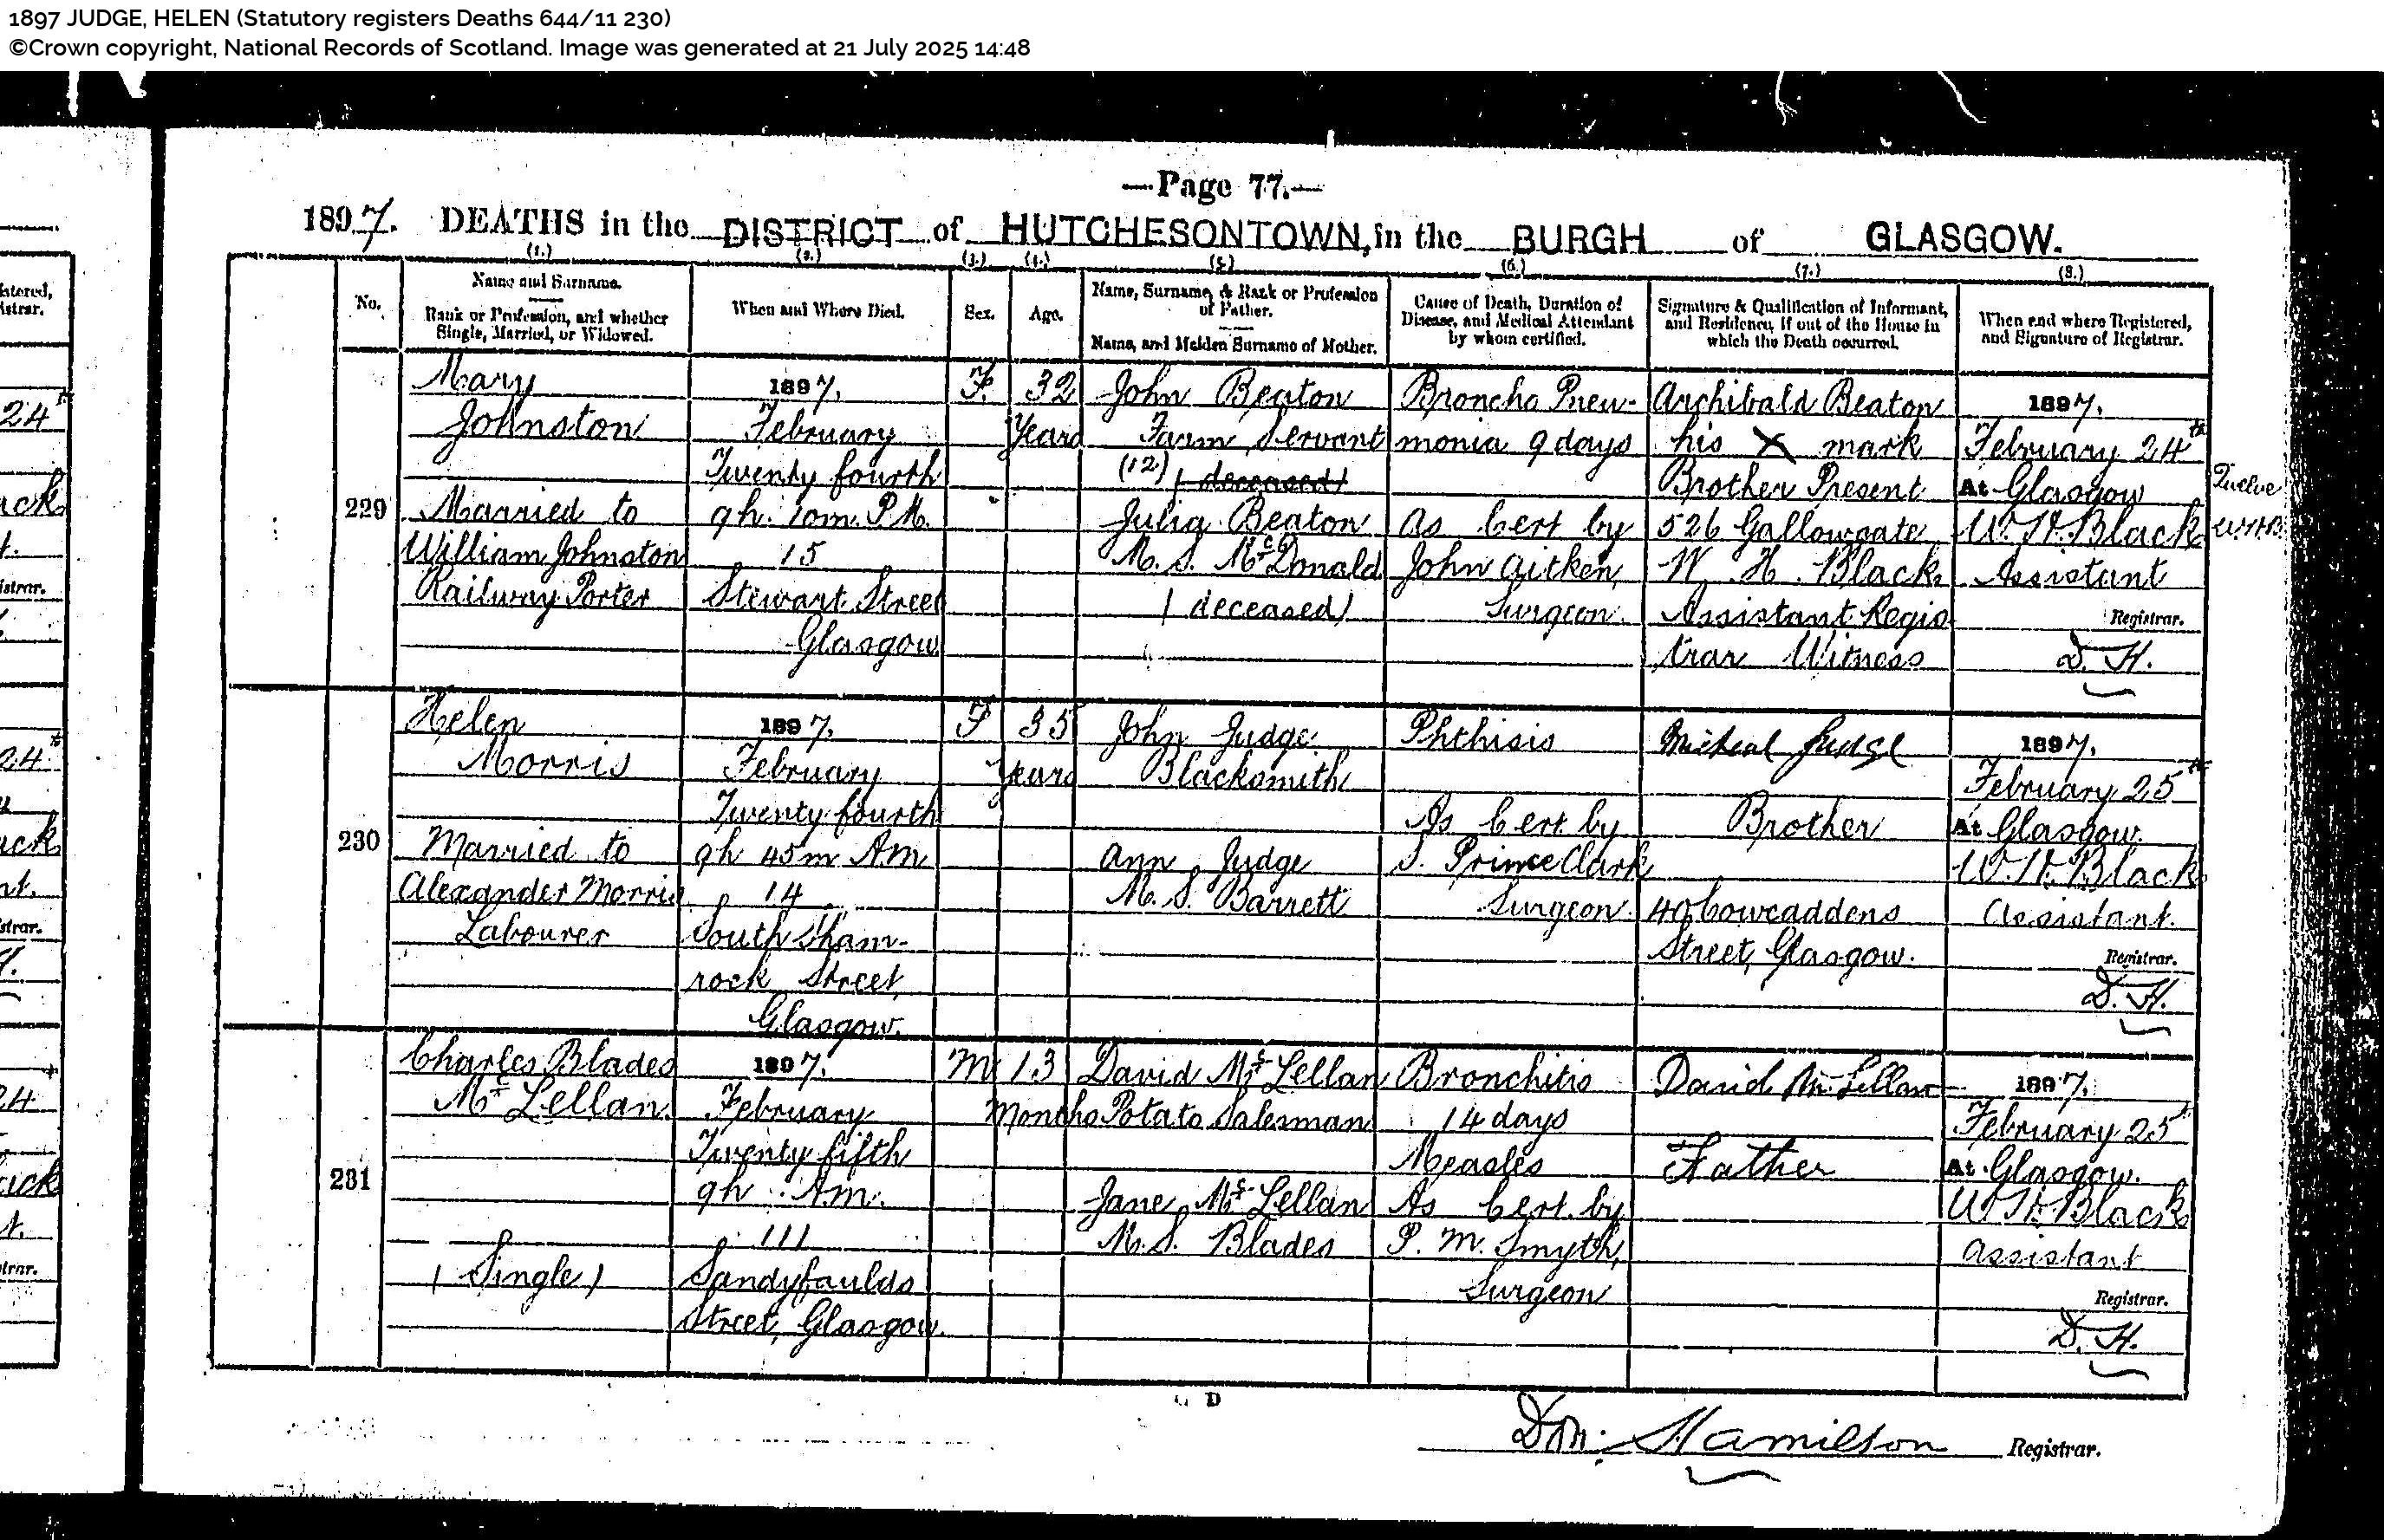 1897 JUDGE, HELEN (Statutory registers Deaths 644/11 230)
©Crown copyright, National Records of Scotland. Image was generated at 21 July 2025 14:48
—Page 77.—
1897. DEATHS in the DISTRICT of HUTCHESONTOWN, in the BURGH of GLASGOW.
(1.) (2.) (3.) (4.) (5.) (6.) (7.) (8.)
No.
Name and Surname.
Rank or Profession, and whether
Single, Married, or Widowed.
When and Where Died.
Sex.
Age.
Name, Surname, & Rank or Profession
of Father.
Name, and Maiden Surname of Mother.
Cause of Death, Duration of
Disease, and Medical Attendant
by whom certified.
Signature & Qualification of Informant,
and Residence, if out of the House in
which the Death occurred.
When and where Registered,
and Signature of Registrar.
229
Mary
Johnston
Married to
William Johnston
Railway Porter
1897.
February
Twenty fourth
9h. 10m. P.M.
15
Stewart Street
Glasgow
F.
32
Years
John Beaton
Farm Servant
(12) (deceased)
Julia Beaton
M.S. McDonald
(deceased)
Broncho Pneu-
monia 9 days
As Cert by
John Aitken,
Surgeon.
Archibald Beaton
his X mark
Brother Present
526 Gallowgate
W. H. Black
Assistant Regis
trar Witness
1897.
February 24th
At Glasgow
W. H. Black
Assistant
Registrar.
D. H.
Twelve
W.H.B.
230
Helen
Morris
Married to
Alexander Morris
Labourer
1897.
February
Twenty fourth
9h 45m AM
14
South Sham-
rock Street,
Glasgow.
F
35
Years
John Judge
Blacksmith
Ann Judge
M.S. Barrett
Phthisis
As Cert by
S. Prince Clark
Surgeon.
Micheal Judge
Brother
40 Cowcaddens
Street, Glasgow.
1897.
February 25th
At Glasgow.
W. H. Black
Assistant.
Registrar.
D. H.
231
Charles Blades
McLellan
(Single)
1897.
February
Twenty fifth
9h. AM.
111
Sandyfaulds
Street, Glasgow.
M
13
Months
David McLellan
Potato Salesman
Jane McLellan
M.S. Blades
Bronchitis
14 days
Measles
As Cert. by
P. M. Smyth,
Surgeon
David McLellan
Father
1897.
February 25th
At Glasgow.
W. H. Black
Assistant
Registrar.
D. H.
D
Hamilton Registrar.
24th
24th
24